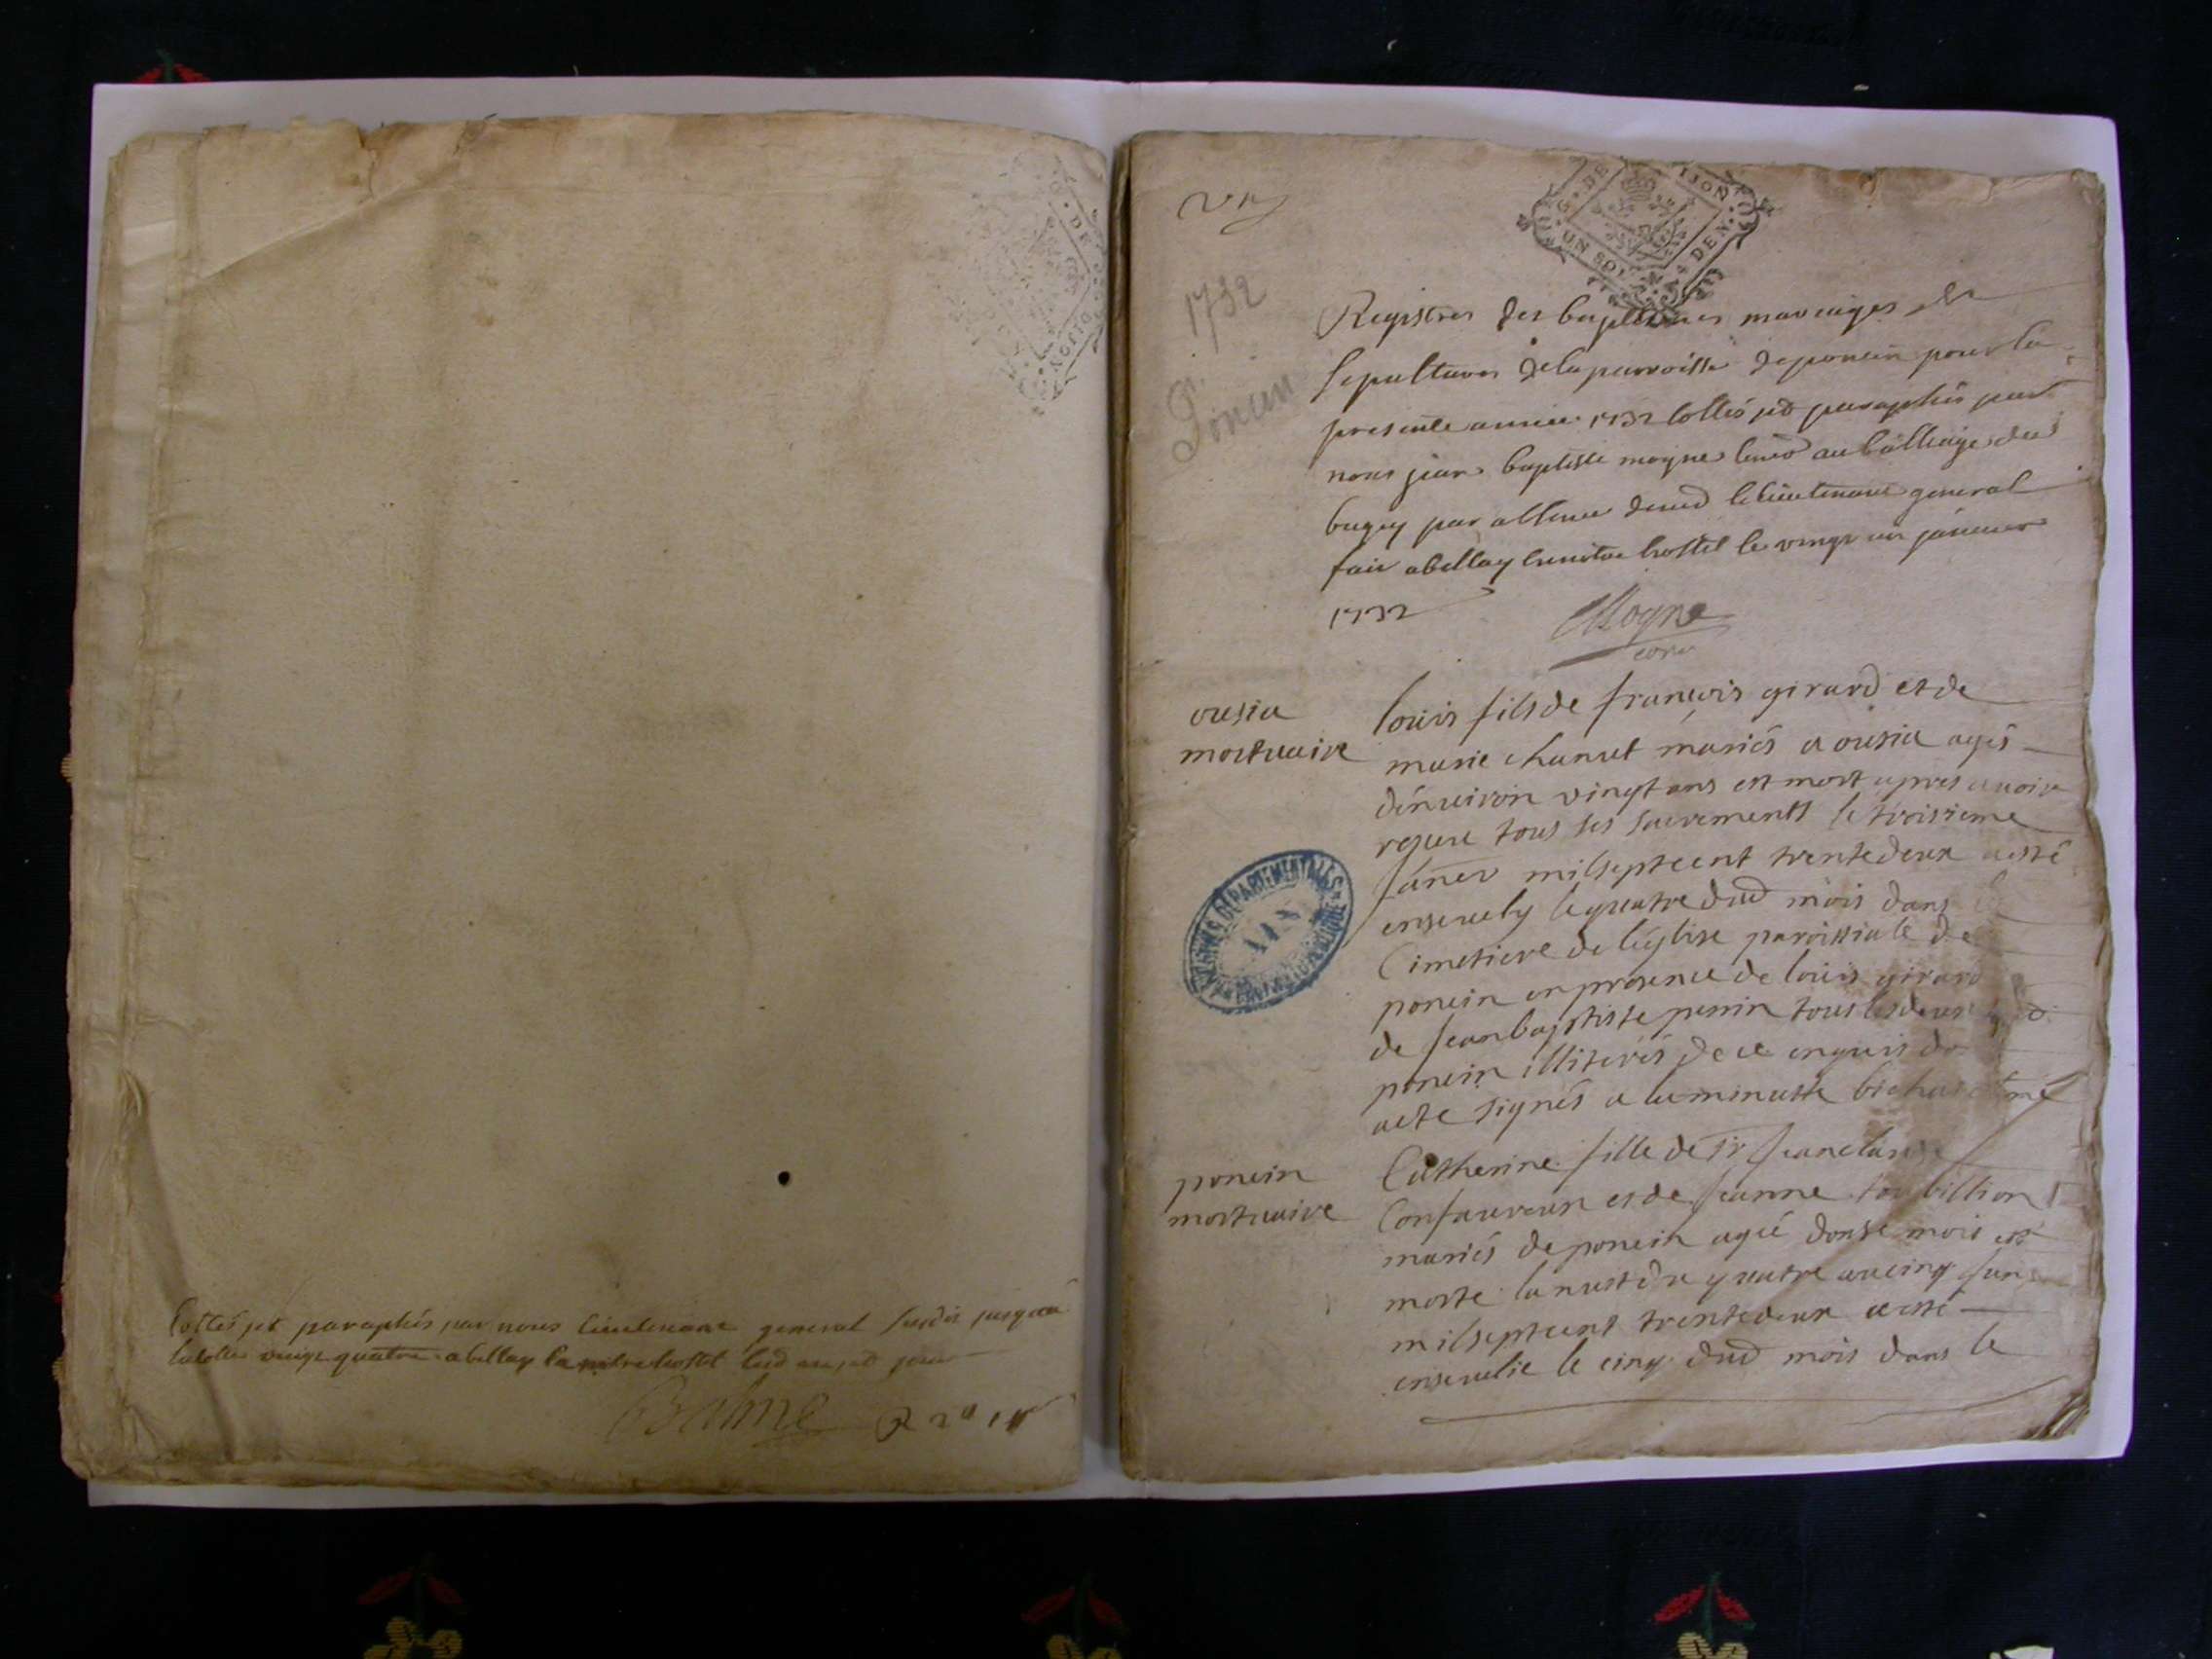 Cottés et paraphés par nous lieutenant general susdit jusques a
la cotte vingt quatre a bellay en nitre hostel led an et jour
Balme
un
1732
Poncin
G. DE DIJON
UN SOL 4 DEN.
Registres des baptesmes mariages et
sepultures de la parroisse de poncin pour la
presente année 1732 cottés et paraphés par
nous jean baptiste mogne conser au balliage du
bugey par absence de mr le lieutenant general
fait a bellay en nitre hostel le vingt un janvier
1732
Mogne
conser
ousia
mortuaire
louis fils de françois girard et de
marie chanut mariés a ousia agés
d'enuiron vingt ans est mort apres auoir
reçeu tous ses sacrements le troisieme
Janer milseptcent trentedeux a esté
enseuely le quatre dud mois dans
Cimetiere de l'eglise paroissiale de
poncin en presence de louis girard
de Jean baptiste perrin tous les deux
poncin illiterés de ce enquis
acte signés a la minutte
ARCHIVES DÉPARTEMENTALES
AIN
poncin
mortuaire
Catherine fille de sr Jean
Confaureux et de Jeanne
mariés de poncin agée donse mois est
morte la nuit du quatre au cinq Jan
milseptcent trentedeux a esté
enseuelie le cinq dud mois dans le